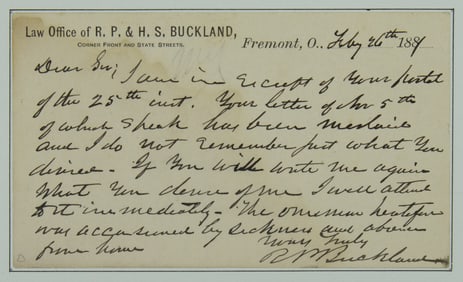 Law Office of R. P. & H. S. BUCKLAND,
CORNER FRONT AND STATE STREETS.
Fremont, O., Feby 26th 188
Dear Sir; I am in receipt of Your postal
of the 25th inst. Your letter of Nov 5th
of which speak has been mislaid
and I do not remember just what You
desired - If You will write me again
What You desire of me I will attend
to it immediately - The omission heretofore
was occasioned by sickness and absence
from home
Yours truly
R P Buckland